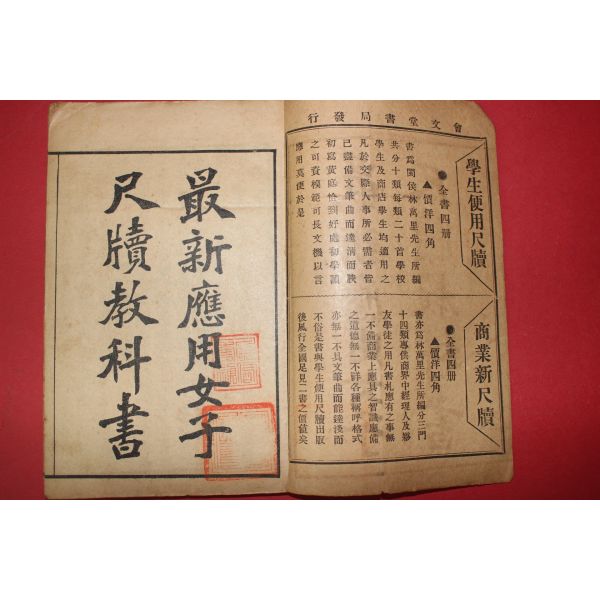 會文堂書局發行
學生便用尺牘
●全書四册
▲價洋四角
書爲閩侯林萬里先生所編
共分十類每類二十首學校
學生及商店學生均適用之
凡於交際人事所必需者皆
已備文筆曲而達淸而腴
初寫黃庭恰到好處初學讀
之可資模範可長文機以言
應用莫便於是
商業新尺牘
●全書四册
▲價洋四角
書亦爲林萬里先生所編分三門
十四類專供商界中經理人及夥
友學徒之用凡書札應有之事無
一不備商業上應具之智識應備
之道德無一不祥各種稱呼格式
亦無一不具文筆曲而能達淺而
不俗是書與學生便用尺牘出版
後風行全國足見二書之價值矣
最新應用女子
尺牘教科書